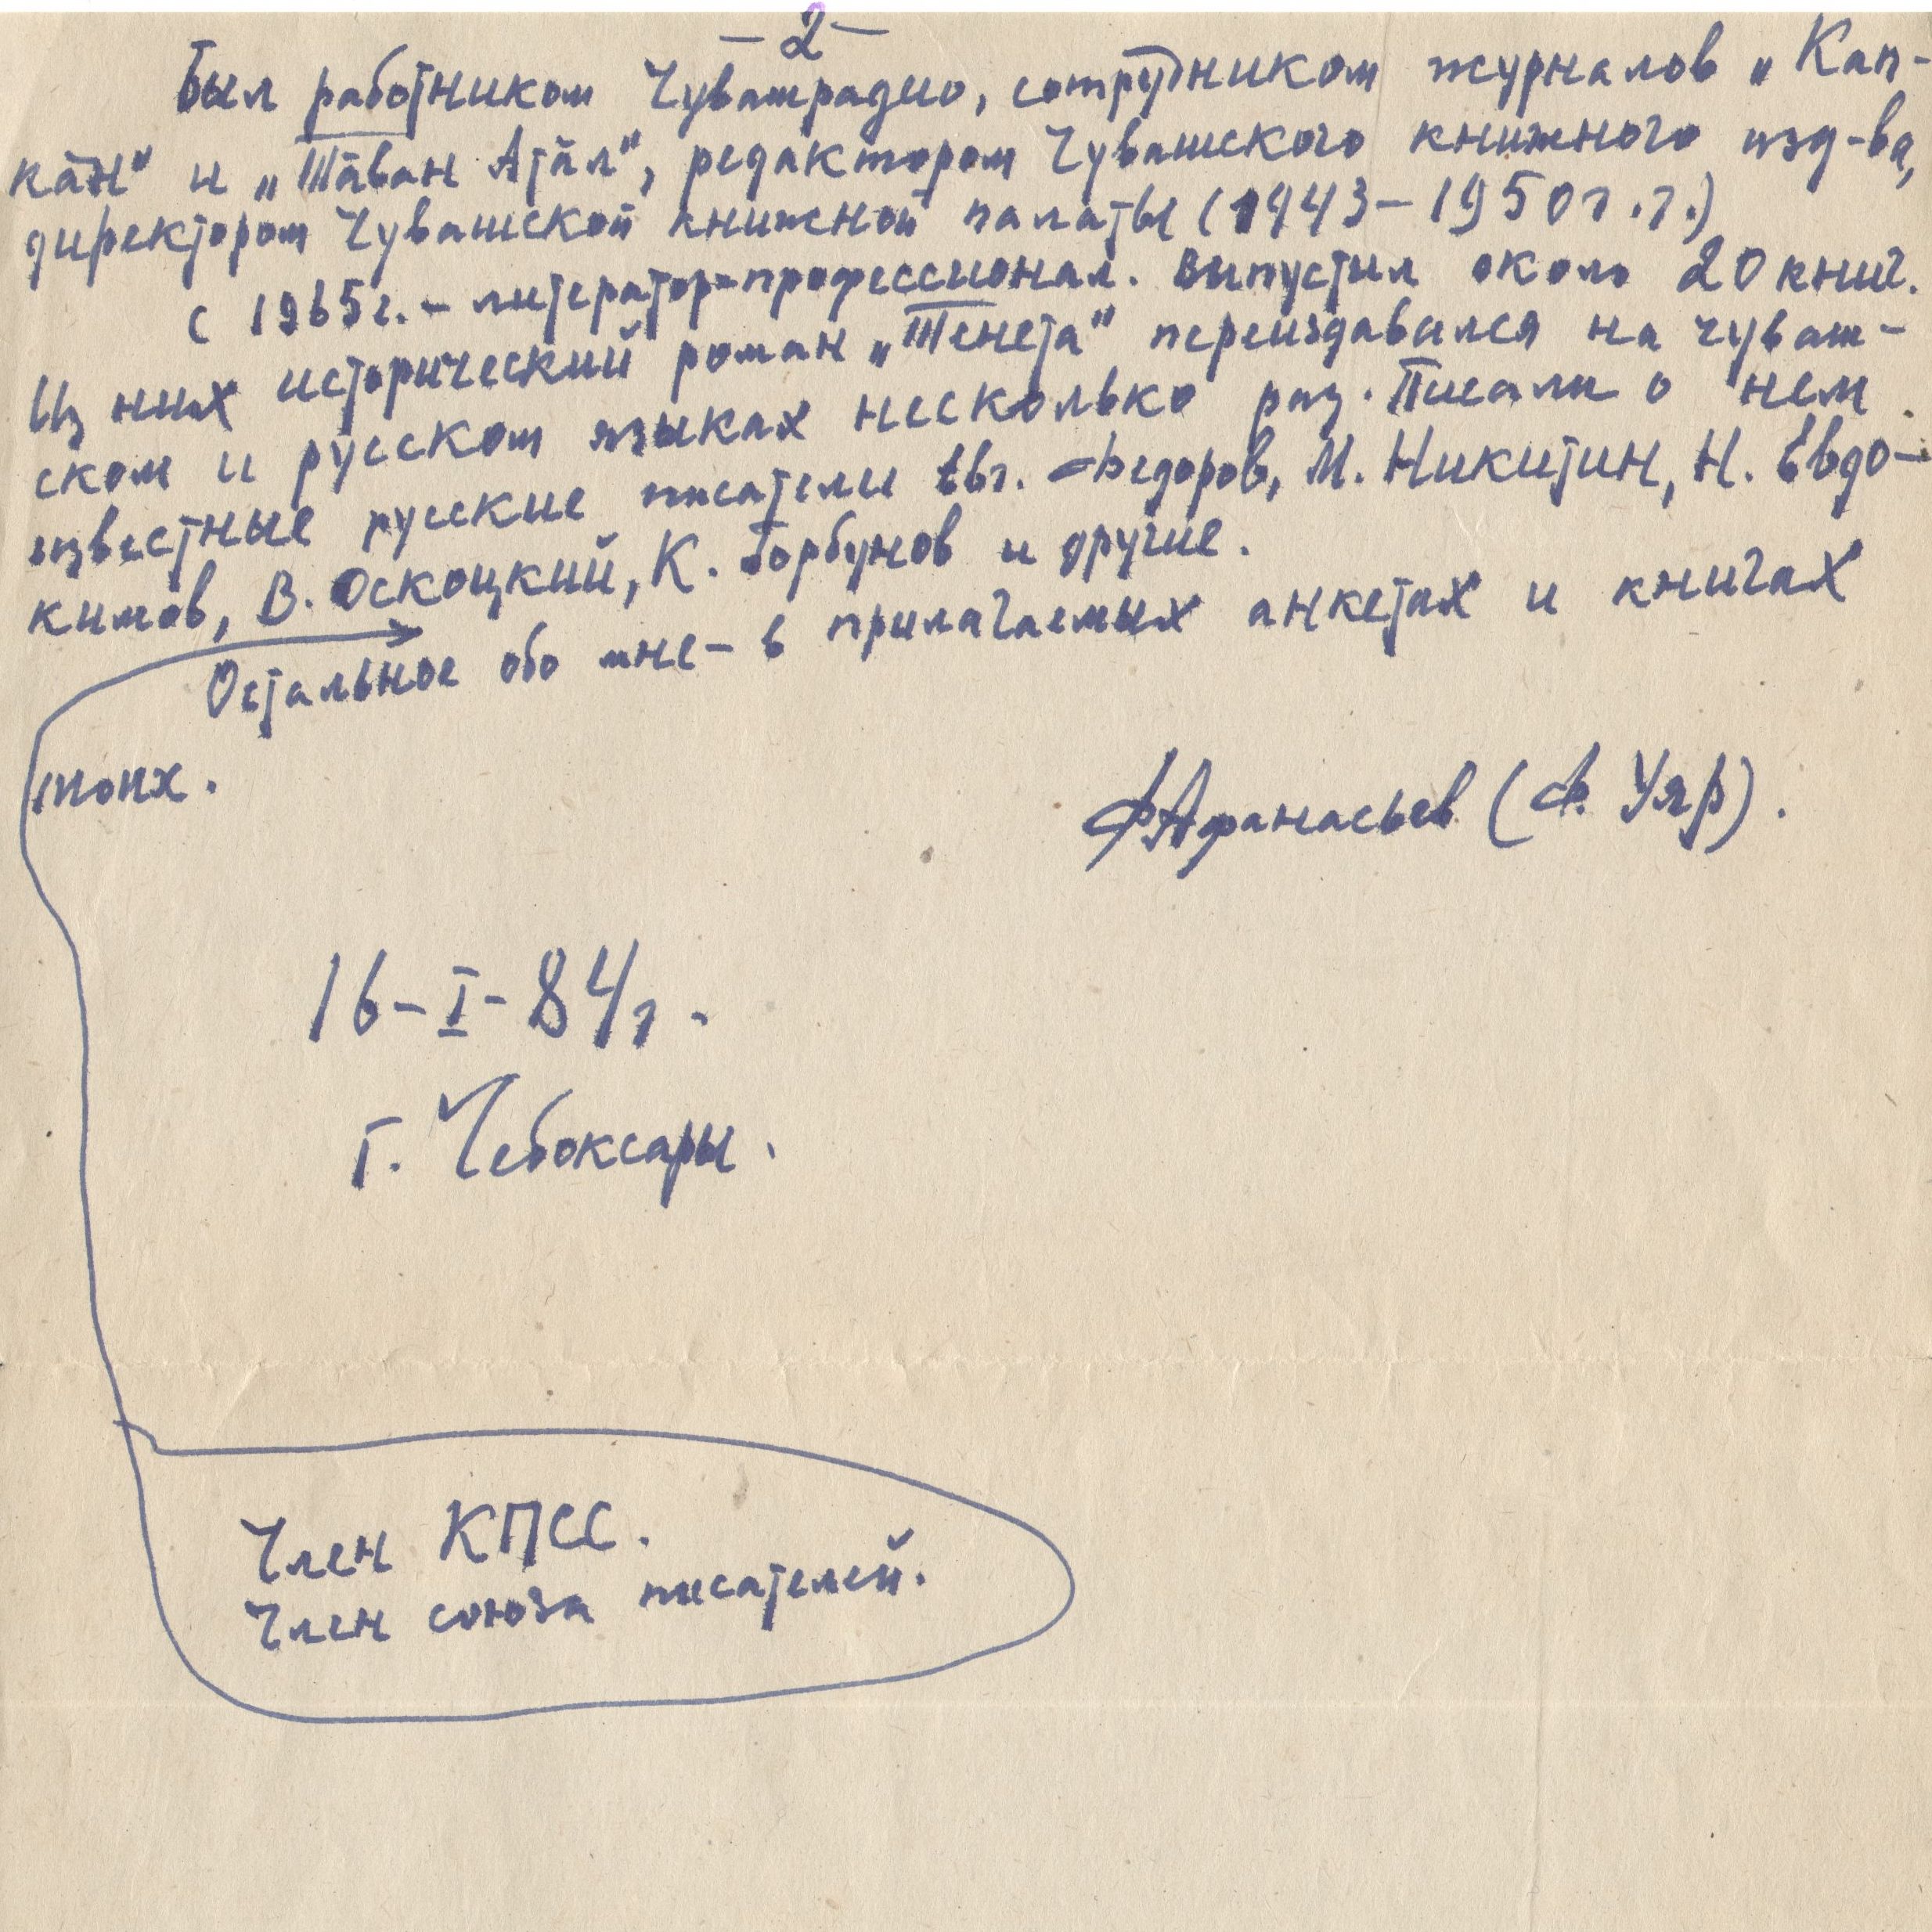 -2-
Был работником Чувашрадио, сотрудником журналов „Кап-
кӑн" и „Тӑван Атӑл", редактором Чувашского книжного изд-ва,
директором Чувашской книжной палаты (1943-1950 г.г.)
С 1965г. - литератор-профессионал. Выпустил около 20 книг.
Из них исторический роман „Тенета" переиздавался на чуваш-
ском и русском языках несколько раз. Писали о нем
известные русские писатели Евг. Федоров, М. Никитин, Н. Евдо-
кимов, В. Оскоцкий, К. Горбунов и другие.
Остальное обо мне - в прилагаемых анкетах и книгах
моих.
ФАфанасьев (Ф. Уяр).
16-I-84г.
Г. Чебоксары.
Член КПСС.
Член союза писателей.